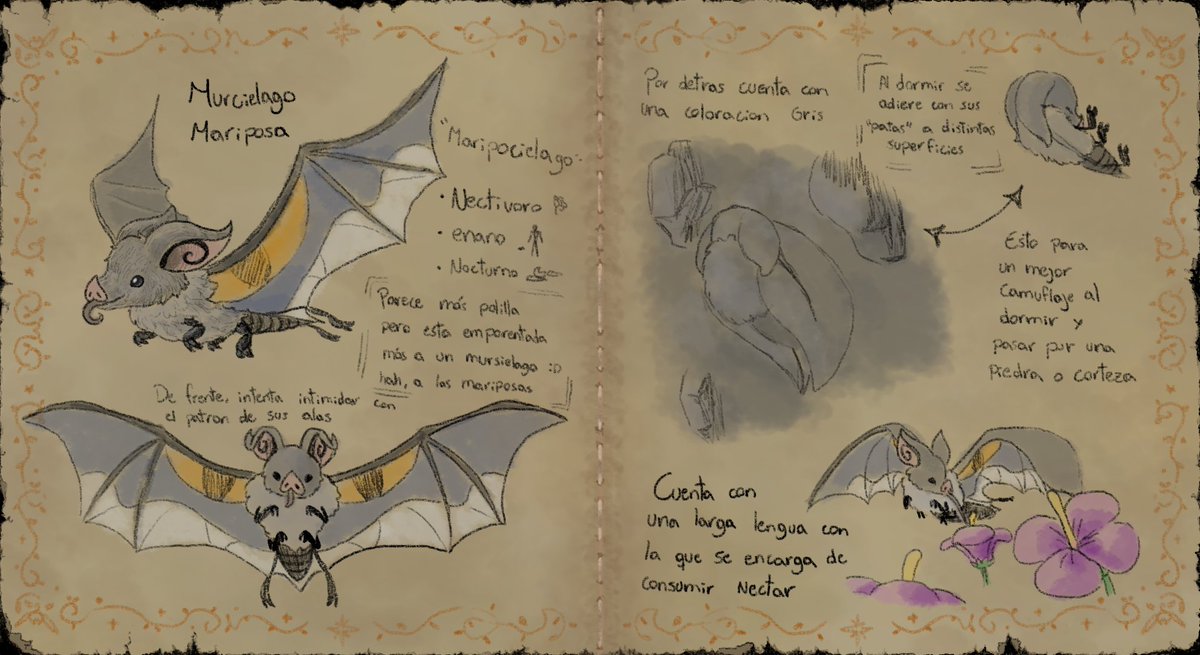 Murcielago
Mariposa
"Maripocielago"
• Nectivoro
• enano
• Nocturno
Parece más polilla
pero esta emparentada
más a un mursielago :D
hah, a las mariposas
De frente, intenta intimidar con
el patron de sus alas
Por detras cuenta con
una coloracion Gris
Al dormir se
adiere con sus
"patas" a distintas
superficies
Esto para
un mejor
camuflaje al
dormir y
pasar por una
Piedra o corteza
Cuenta con
una larga lengua con
la que se encarga de
consumir Nectar